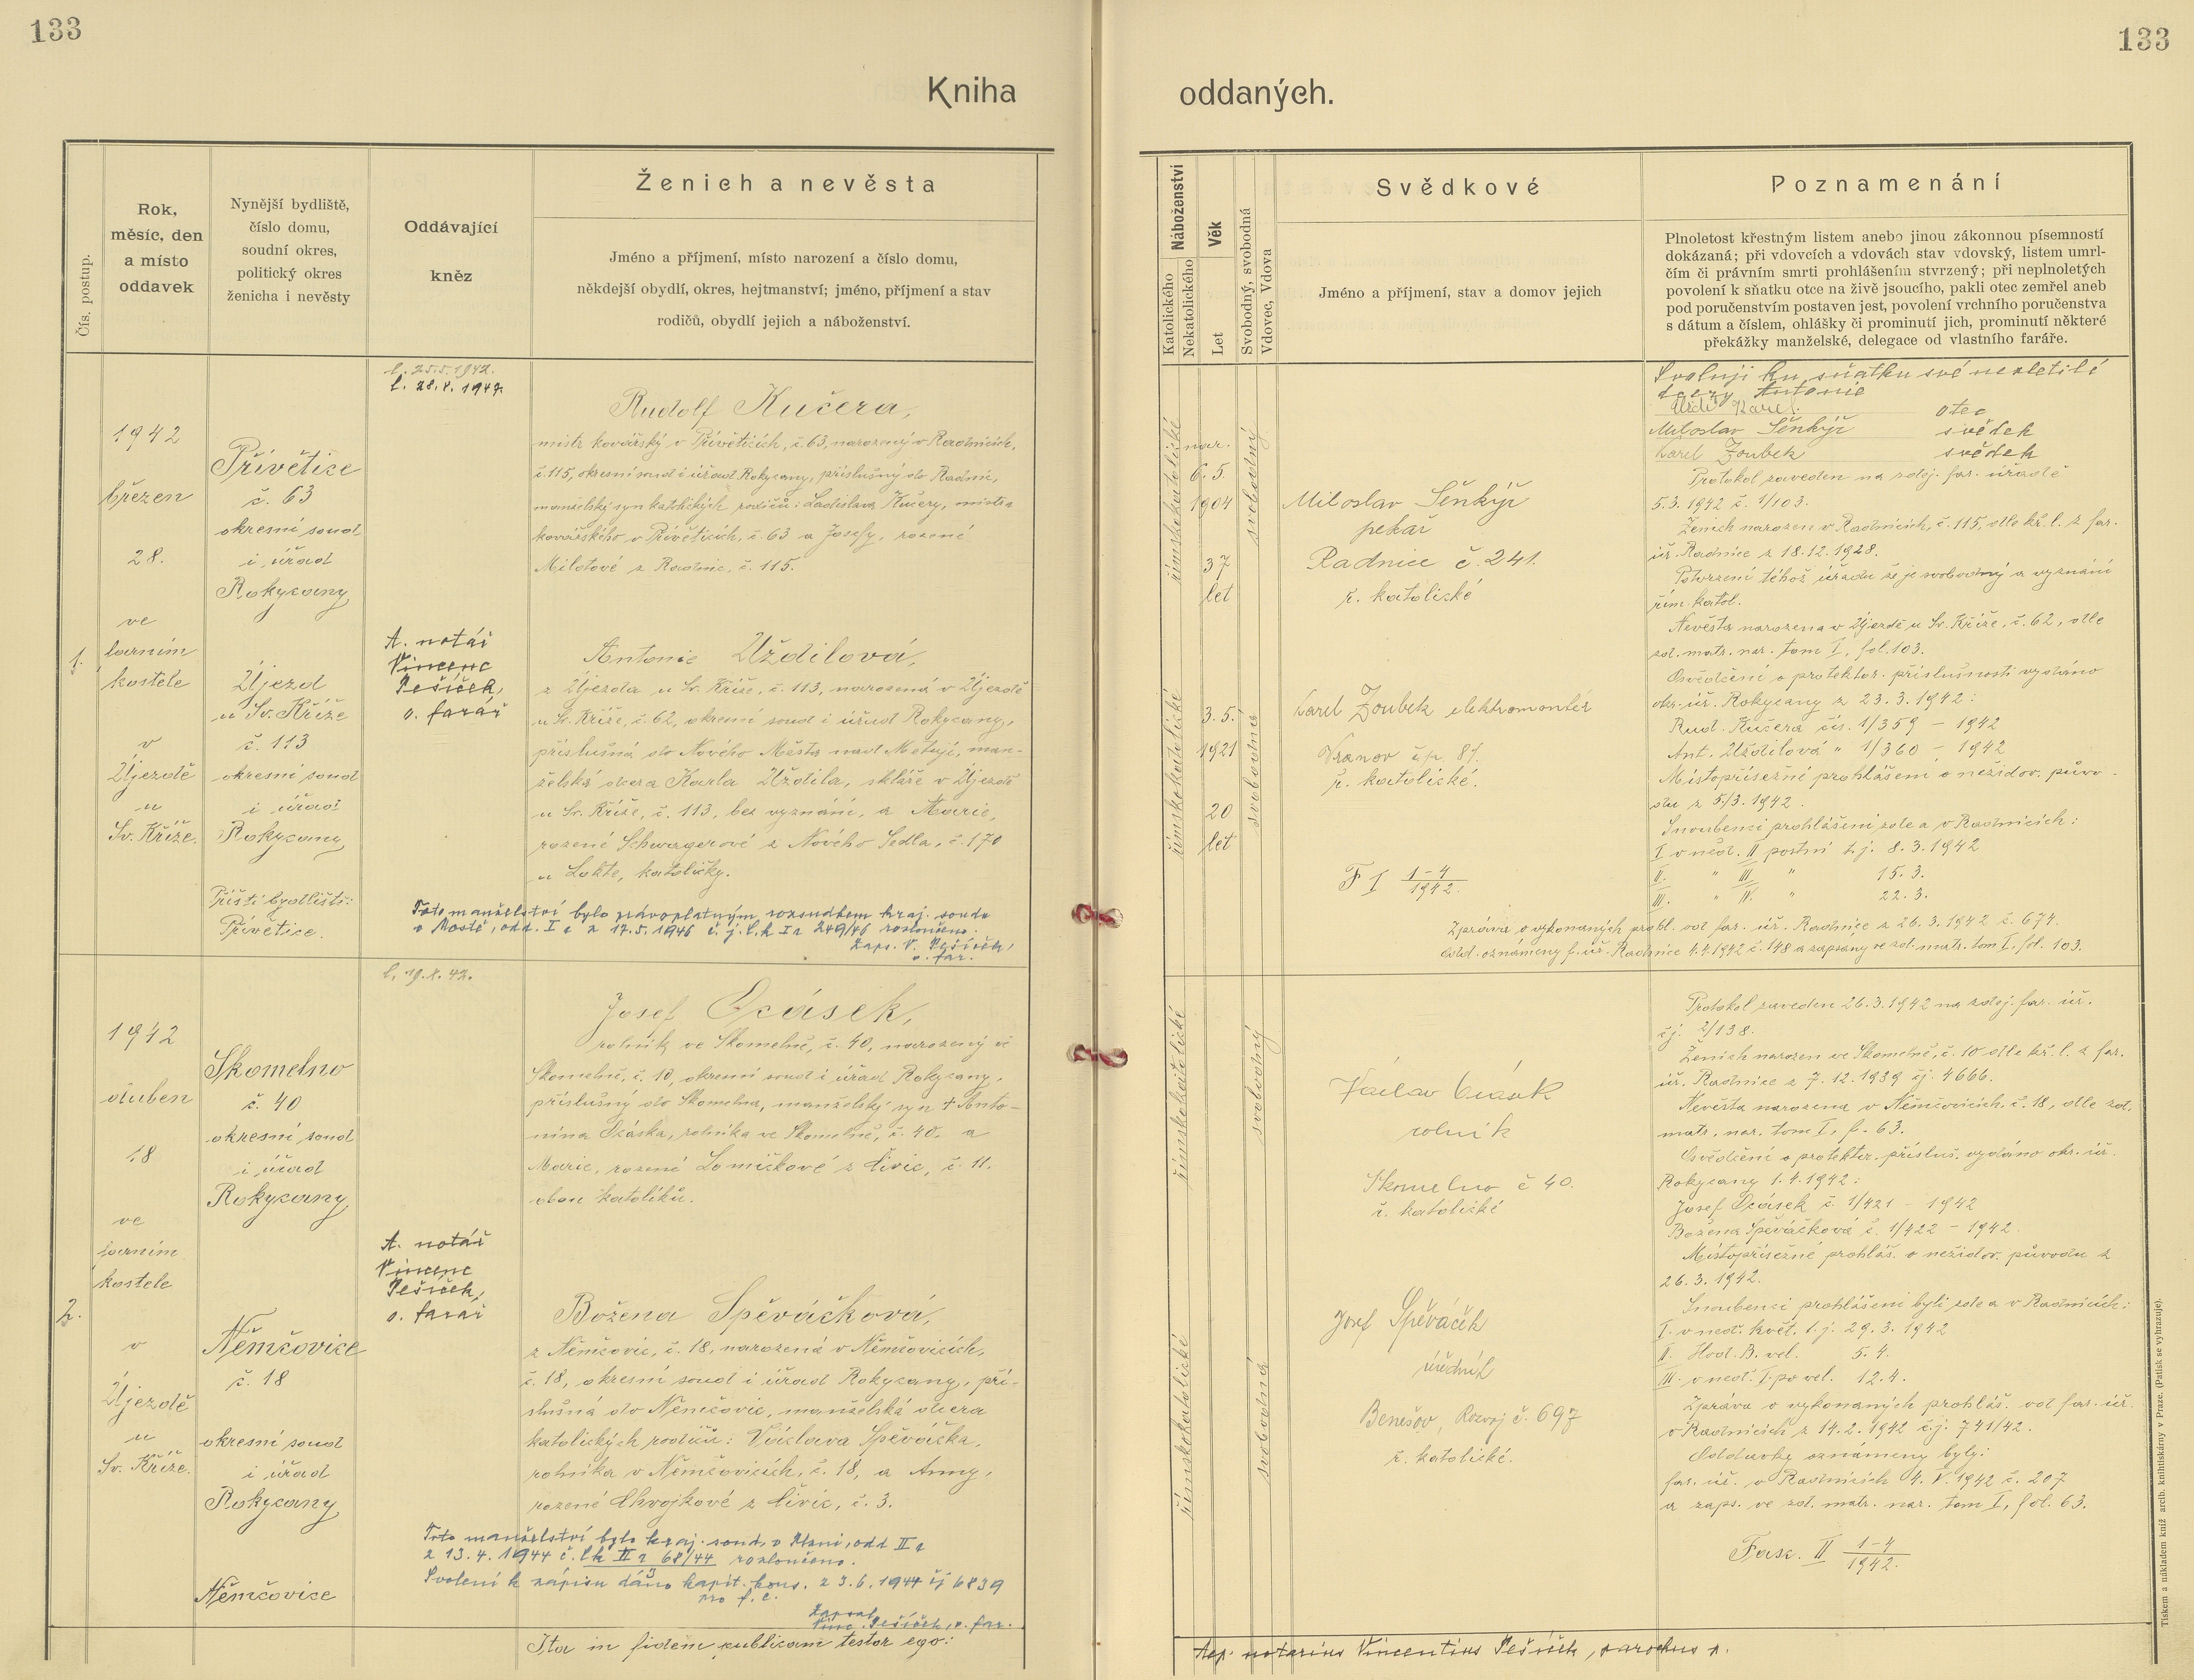 133
133
Kniha
oddaných.
Čís. postup.
Rok,
měsíc, den
a místo
oddavek
Nynější bydliště,
číslo domu,
soudní okres,
politický okres
ženicha i nevěsty
Oddávající
kněz
Ženich a nevěsta
Jméno a příjmení, místo narození a číslo domu,
někdejší obydlí, okres, hejtmanství; jméno, příjmení a stav
rodičů, obydlí jejich a náboženství.
Náboženství
Katolického
Nekatolického
Věk
Let
Svobodný, svobodná
Vdovec, Vdova
Svědkové
Jméno a příjmení, stav a domov jejich
Poznamenání
Plnoletost křestným listem anebo jinou zákonnou písemností
dokázaná; při vdovcích a vdovách stav vdovský, listem umrl-
čím či právním smrti prohlášením stvrzený; při neplnoletých
povolení k sňatku otce na živě jsoucího, pakli otec zemřel aneb
pod poručenstvím postaven jest, povolení vrchního poručenstva
s dátum a číslem, ohlášky či prominutí jich, prominutí některé
překážky manželské, delegace od vlastního faráře.
1.
1942
březen
28.
ve
farním
kostele
v
Újezdě
u
Sv. Kříže.
Přívětice
č. 63
okresní soud
i úřad
Rokycany
Újezd
u Sv. Kříže
č. 113
okresní soud
i úřad
Rokycany
Příští bydliště:
Přívětice.
l. 25.5.1942.
l. 28.8.1942.
A. notář
Vincenc
Pešíček,
o. farář
Rudolf Kučera,
mistr kovářský v Příveticích, č. 63, narozený v Radnicích,
č. 115, okresní soud i úřad Rokycany, příslušný do Radnic,
manželský syn katolických rodičů: Ladislava Kučery, mistra
kovářského v Příveticích, č. 63 a Josefy, rozené
Milotové z Radnic, č. 115.
Antonie Uždilová,
z Újezda u Sv. Kříže, č. 113, narozená v Újezdě
u Sv. Kříže, č. 62, okresní soud i úřad Rokycany,
příslušná do Nového Města nad Metují, man-
želská dcera Karla Uždila, skláře v Újezdě
u Sv. Kříže, č. 113, bez vyznání, a Marie,
rozené Schwagerové z Nového Sedla, č. 170
u Lokte, katoličky.
Toto manželství bylo právoplatným rozsudkem kraj. soudu
v Mostě, odd. I c z 17.5.1946 č. j. C k Ia 249/46 rozloučeno.
Zaps. V. Pešíček,
o. far.
římskokatolické
nar.
6.5.
1904
37
let
svobodný
římskokatolické
3.5.
1921
20
let
svobodná
Miloslav Šenkýř
pekař
Radnice č. 241.
ř. katolické
Karel Zoubek elektromontér
Vranov čp. 87.
ř. katolické.
F I 1-4
1942.
Svoluji ku sňatku své nezletilé
dcery Antonie
Uždil Karel. otec
Miloslav Šenkýř svědek
Karel Zoubek svědek
Protokol zaveden na zdej. far. úřadě
5.3.1942 č. 1/103.
Ženich narozen v Radnicích, č. 115, dle kř. l. z far.
úř. Radnice z 18.12.1928.
Potvrzení téhož úřadu že je svobodný a vyznání
řím. katol.
Nevěsta narozena v Újezdě u Sv. Kříže, č. 62, dle
zd. matr. nar. tom I, fol. 103.
Osvědčení o protektor. příslušnosti vydáno
okr. úř. Rokycany z 23.3.1942:
Rud. Kučera čís. 1/359 – 1942
Ant. Uždilová " 1/360 – 1942
Místopřísežné prohlášení o nežidov. půvo-
du z 5./3. 1942.
Snoubenci prohlášeni zde a v Radnicích:
I. v ned. II postní t.j. 8.3.1942
II. " III. " 15.3.
III. " IV. " 22.3.
Zpráva o vykonaných prohl. od far. úř. Radnice z 26.3.1942 č. 674.
Odd. oznámeny f. úř. Radnice 4.4.1942 č. 148 a zapsany ve zd. matr. tom I, fol. 103.
2.
1942
duben
18
ve
farním
kostele
v
Újezdě
u
Sv. Kříže.
Skomelno
č. 40
okresní soud
i úřad
Rokycany
Němčovice
č. 18
okresní soud
i úřad
Rokycany
Němčovice
l. 19.8.42.
A. notář
Vincenc
Pešíček,
o. farář
Josef Ocásek,
rolník ve Skomelně, č. 40, narozený ve
Skomelně, č. 10, okresní soud i úřad Rokycany,
příslušný do Skomelna, manželský syn † Anto-
nína Ocáska, rolníka ve Skomelně, č. 40. a
Marie, rozené Lomičkové z Čivic, č. 11.
obou katolíků.
Božena Spěváčková,
z Němčovic, č. 18, narozená v Němčovicích,
č. 18, okresní soud i úřad Rokycany, pří-
slušná do Němčovic, manželská dcera
katolických rodičů: Václava Spěváčka,
rolníka v Němčovicích, č. 18, a Anny,
rozené Chvojkové z Čivic, č. 3.
Toto manželství bylo kraj. soud. v Plzni, odd II a
z 13.4.1944 č. Ck II a 68/44 rozloučeno.
Svolení k zápisu dáno kapit. kons. z 3.6.1944 čj 6839
pro f. c.
Zapsal
Vinc. Pešíček, o. far.
římskokatolické
svobodný
římskokatolické
svobodná
Václav Ocásek
rolník
Skomelno č 40.
ř. katolické
Josef Spěváček
úředník
Benešov, Rozvoj č. 697
ř. katolické.
Protokol zaveden 26.3.1942 na zdej. far. úř.
čj. 2/138.
Ženich narozen ve Skomelně, č. 10 dle kř. l. z far.
úř. Radnice z 7.12.1939 čj. 4666.
Nevěsta narozena v Němčovicích, č. 18, dle zd.
matr. nar. tom I, f. 63.
Osvědčení o protektor. přísluš. vydáno okr. úř.
Rokycany 1.4.1942:
Josef Ocásek č. 1/421 – 1942
Božena Spěváčková č. 1/422 – 1942.
Místopřísežné prohláš. o nežidov. původu z
26.3.1942.
Snoubenci prohlášeni byli zde a v Radnicích:
I. v neď. květ. t.j. 29.3.1942
II. Hod. B. vel. 5.4.
III. v neď. I. po vel. 12.4.
Zpráva o vykonaných prohláš. od far. úř.
v Radnicích z 14.2.1942 čj. 741/42.
Oddavky oznámeny byly:
far. úř. v Radnicích 4.V.1942 č. 207
a zaps. ve zd. matr. nar. tom I, fol. 63.
Fasc. II 1-4
1942.
Ita in fidem publicam testor ego:
Aep. notarius Vincentius Pešíček, parochus
Tiskem a nákladem kníž. arcib. knihtiskárny v Praze. (Patisk se vyhrazuje).